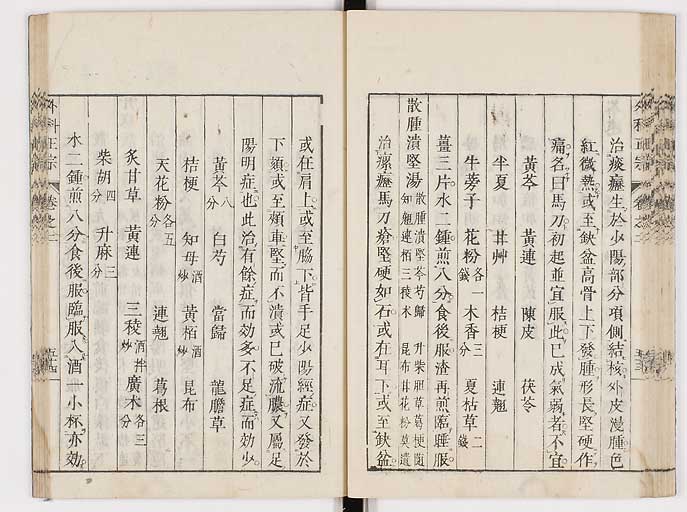 治痰癧生於少陽部分項側結核外皮漫腫色
紅微熱或至缺盆高骨上下發腫形長堅硬作
痛名曰馬刀初起並宜服此已成氣弱者不宜
黃芩 黃連 陳皮 茯苓
半夏 甘艸 桔梗 連翹
牛蒡子 花粉各一錢 木香三分 夏枯草二錢
薑三片水二鍾煎八分食後服渣再煎臨睡服
散腫潰堅湯 散腫潰堅芩芍歸 升柴胆草葛梗隨 知翹連栢三稜木 昆布甘花粉莫遺
治瘰癧馬刀瘡堅硬如石或在耳下或至缺盆
或在肩上或至脇下皆手足少陽經症又發於
下頦或至頰車堅而不潰或已破流膿又屬足
陽明症也此治有餘症而効多不足症而効少
黃芩八分 白芍 當歸 龍膽草
桔梗 知母酒炒 黃栢酒炒 昆布
天花粉各五分 連翹 葛根
炙甘草 黃連 三稜酒拌炒 廣木各三分
柴胡四分 升麻三分
水二鍾煎八分食後服臨服入酒一小杯亦効
外科正宗 卷之二
外科正宗 卷之二